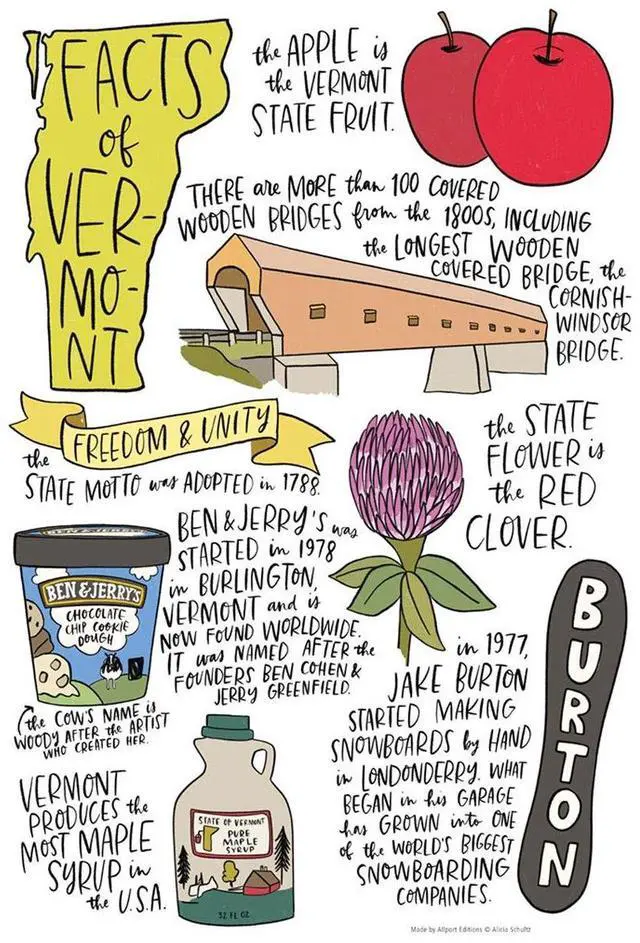 FACTS
of
VER-
MO-
NT
the APPLE is
the VERMONT
STATE FRUIT.
THERE are MORE than 100 COVERED
WOODEN BRIDGES from the 1800S, INCLUDING
the LONGEST WOODEN
COVERED BRIDGE, the
CORNISH-
WINDSOR
BRIDGE.
FREEDOM & UNITY
the
STATE MOTTO was ADOPTED in 1788.
the STATE
FLOWER is
the RED
CLOVER.
BEN & JERRY'S
CHOCOLATE
CHIP COOKIE
DOUGH
BEN & JERRY'S was
STARTED in 1978
in BURLINGTON,
VERMONT and is
NOW FOUND WORLDWIDE.
IT was NAMED AFTER the
FOUNDERS BEN COHEN &
JERRY GREENFIELD.
the COW'S NAME is
WOODY AFTER the ARTIST
WHO CREATED HER.
in 1977,
JAKE BURTON
STARTED MAKING
SNOWBOARDS by HAND
in LONDONDERRY. WHAT
BEGAN in his GARAGE
has GROWN into ONE
of the WORLD'S BIGGEST
SNOWBOARDING
COMPANIES.
BURTON
VERMONT
PRODUCES the
MOST MAPLE
SYRUP in
the U.S.A.
STATE OF VERMONT
PURE
MAPLE
SYRUP
32 FL OZ
Made by Allport Editions © Alicia Schultz